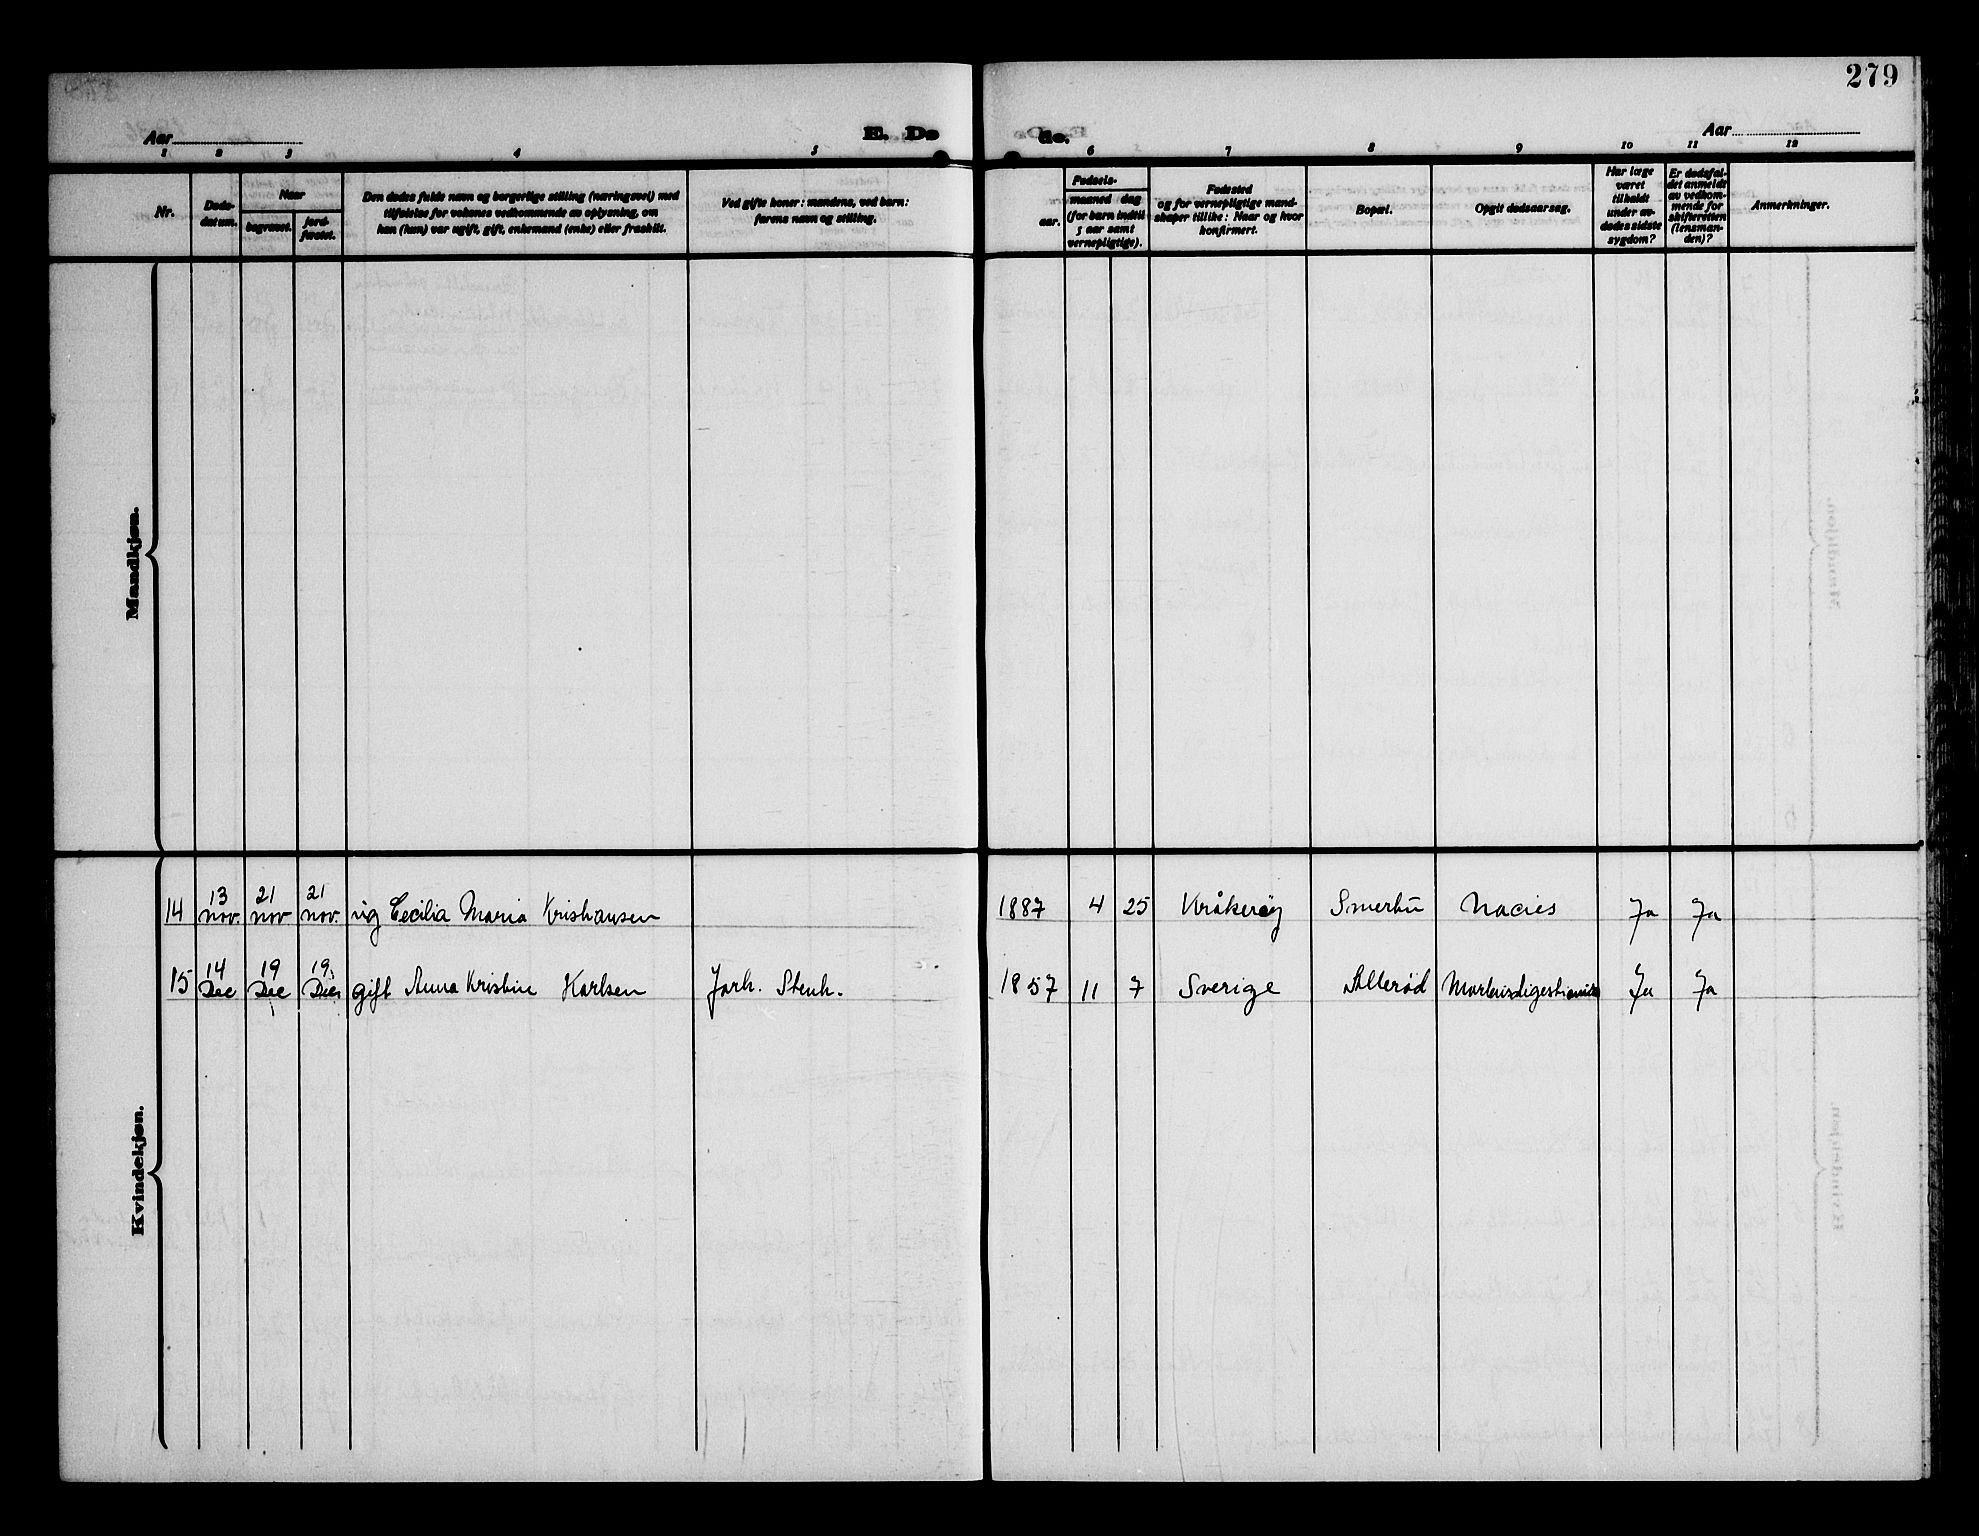 279
Aar
E. De
de.
Aar
1 2 3 4 5 6 7 8 9 10 11 12
Nr.
Døds-
datum.
Naar
begravet.
jord-
fæstet.
Den dødes fulde navn og borgerlige stilling (næringsvei) med
tilføielse for voksnes vedkommende av oplysning, om
han (hun) var ugift, gift, enkemand (enke) eller fraskilt.
Ved gifte koner: mandens, ved barn:
farens navn og stilling.
Fødsels-
aar.
maaned dag
(for barn indtil
5 aar samt
vernepligtige).
Fødested
og for vernepligtige mand-
skaper tillike: Naar og hvor
konfirmert.
Bopæl.
Opgit dødsaarsag.
Har læge
været
tilkaldt
under av-
dødes sidste
sygdom?
Er dødsfal-
det anmeldt
av vedkom-
mende for
skifteretten
(lensman-
den)?
Anmerkninger.
Mandkjøn.
Kvindekjøn.
13 21 21
14 nov. nov nov. ug Cecilia Maria Kristiansen 1887 4 25 Kråkerøy Smertu Ja Ja
14 19 19.
15 Dec Dec Dec gift Anna Kristine Karlsen Jarh. Stenh. 1857 11 7 Sverige Allerød Ja Ja